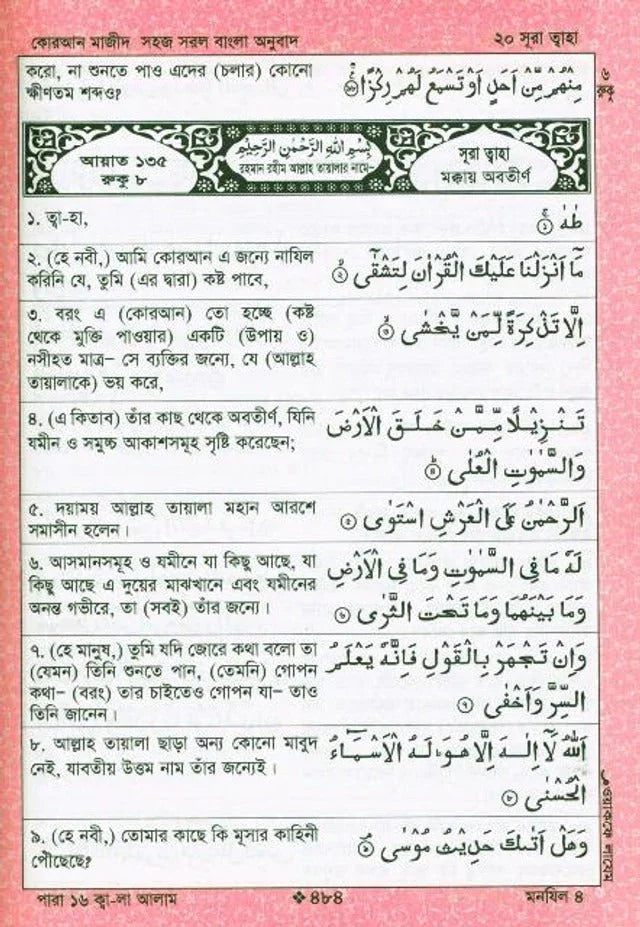 কোরআন মাজীদ সহজ সরল বাংলা অনুবাদ
২০ সূরা ত্বাহা
করো, না শুনতে পাও এদের (চলার) কোনো
ক্ষীণতম শব্দও?
مِنْهُمْ مِّنْ اَحَدٍ اَوْ تَسْمَعُ لَهُمْ رِكْزًا ﴿٩٨﴾
৬
রুকু
আয়াত ১৩৫
রুকু ৮
بِسْمِ اللّٰهِ الرَّحْمٰنِ الرَّحِيْمِ
রহমান রহীম আল্লাহ তায়ালার নামে–
সূরা ত্বাহা
মক্কায় অবতীর্ণ
১. ত্বা-হা,
طٰهٰ ﴿١﴾
২. (হে নবী,) আমি কোরআন এ জন্যে নাযিল
করিনি যে, তুমি (এর দ্বারা) কষ্ট পাবে,
مَاۤ اَنْزَلْنَا عَلَيْكَ الْقُرْاٰنَ لِتَشْقٰۤى ﴿٢﴾
৩. বরং এ (কোরআন) তো হচ্ছে (কষ্ট
থেকে মুক্তি পাওয়ার) একটি (উপায় ও)
নসীহত মাত্র– সে ব্যক্তির জন্যে, যে (আল্লাহ
তায়ালাকে) ভয় করে,
اِلَّا تَذْكِرَةً لِّمَنْ يَّخْشٰى ﴿٣﴾
৪. (এ কিতাব) তাঁর কাছ থেকে অবতীর্ণ, যিনি
যমীন ও সমুচ্চ আকাশসমূহ সৃষ্টি করেছেন;
تَنْزِيْلًا مِّمَّنْ خَلَقَ الْاَرْضَ
وَالسَّمٰوٰتِ الْعُلٰى ﴿٤﴾
৫. দয়াময় আল্লাহ তায়ালা মহান আরশে
সমাসীন হলেন।
اَلرَّحْمٰنُ عَلَى الْعَرْشِ اسْتَوٰى ﴿٥﴾
৬. আসমানসমূহ ও যমীনে যা কিছু আছে, যা
কিছু আছে এ দুয়ের মাঝখানে এবং যমীনের
অনন্ত গভীরে, তা (সবই) তাঁর জন্যে।
لَهٗ مَا فِى السَّمٰوٰتِ وَمَا فِى الْاَرْضِ
وَمَا بَيْنَهُمَا وَمَا تَحْتَ الثَّرٰى ﴿٦﴾
৭. (হে মানুষ,) তুমি যদি জোরে কথা বলো তা
(যেমন) তিনি শুনতে পান, (তেমনি) গোপন
কথা– (বরং) তার চাইতেও গোপন যা– তাও
তিনি জানেন।
وَاِنْ تَجْهَرْ بِالْقَوْلِ فَاِنَّهٗ يَعْلَمُ
السِّرَّ وَاَخْفٰى ﴿٧﴾
৮. আল্লাহ তায়ালা ছাড়া অন্য কোনো মাবুদ
নেই, যাবতীয় উত্তম নাম তাঁর জন্যেই।
اَللّٰهُ لَاۤ اِلٰهَ اِلَّا هُوَ ؕ لَهُ الْاَسْمَآءُ
الْحُسْنٰى ﴿٨﴾
ওয়াকফে লাযেম
৯. (হে নবী,) তোমার কাছে কি মূসার কাহিনী
পৌছেছে?
وَهَلْ اَتٰىكَ حَدِيْثُ مُوْسٰى ﴿٩﴾
পারা ১৬ ক্বা-লা আলাম
❖৪৮৪
মনযিল ৪